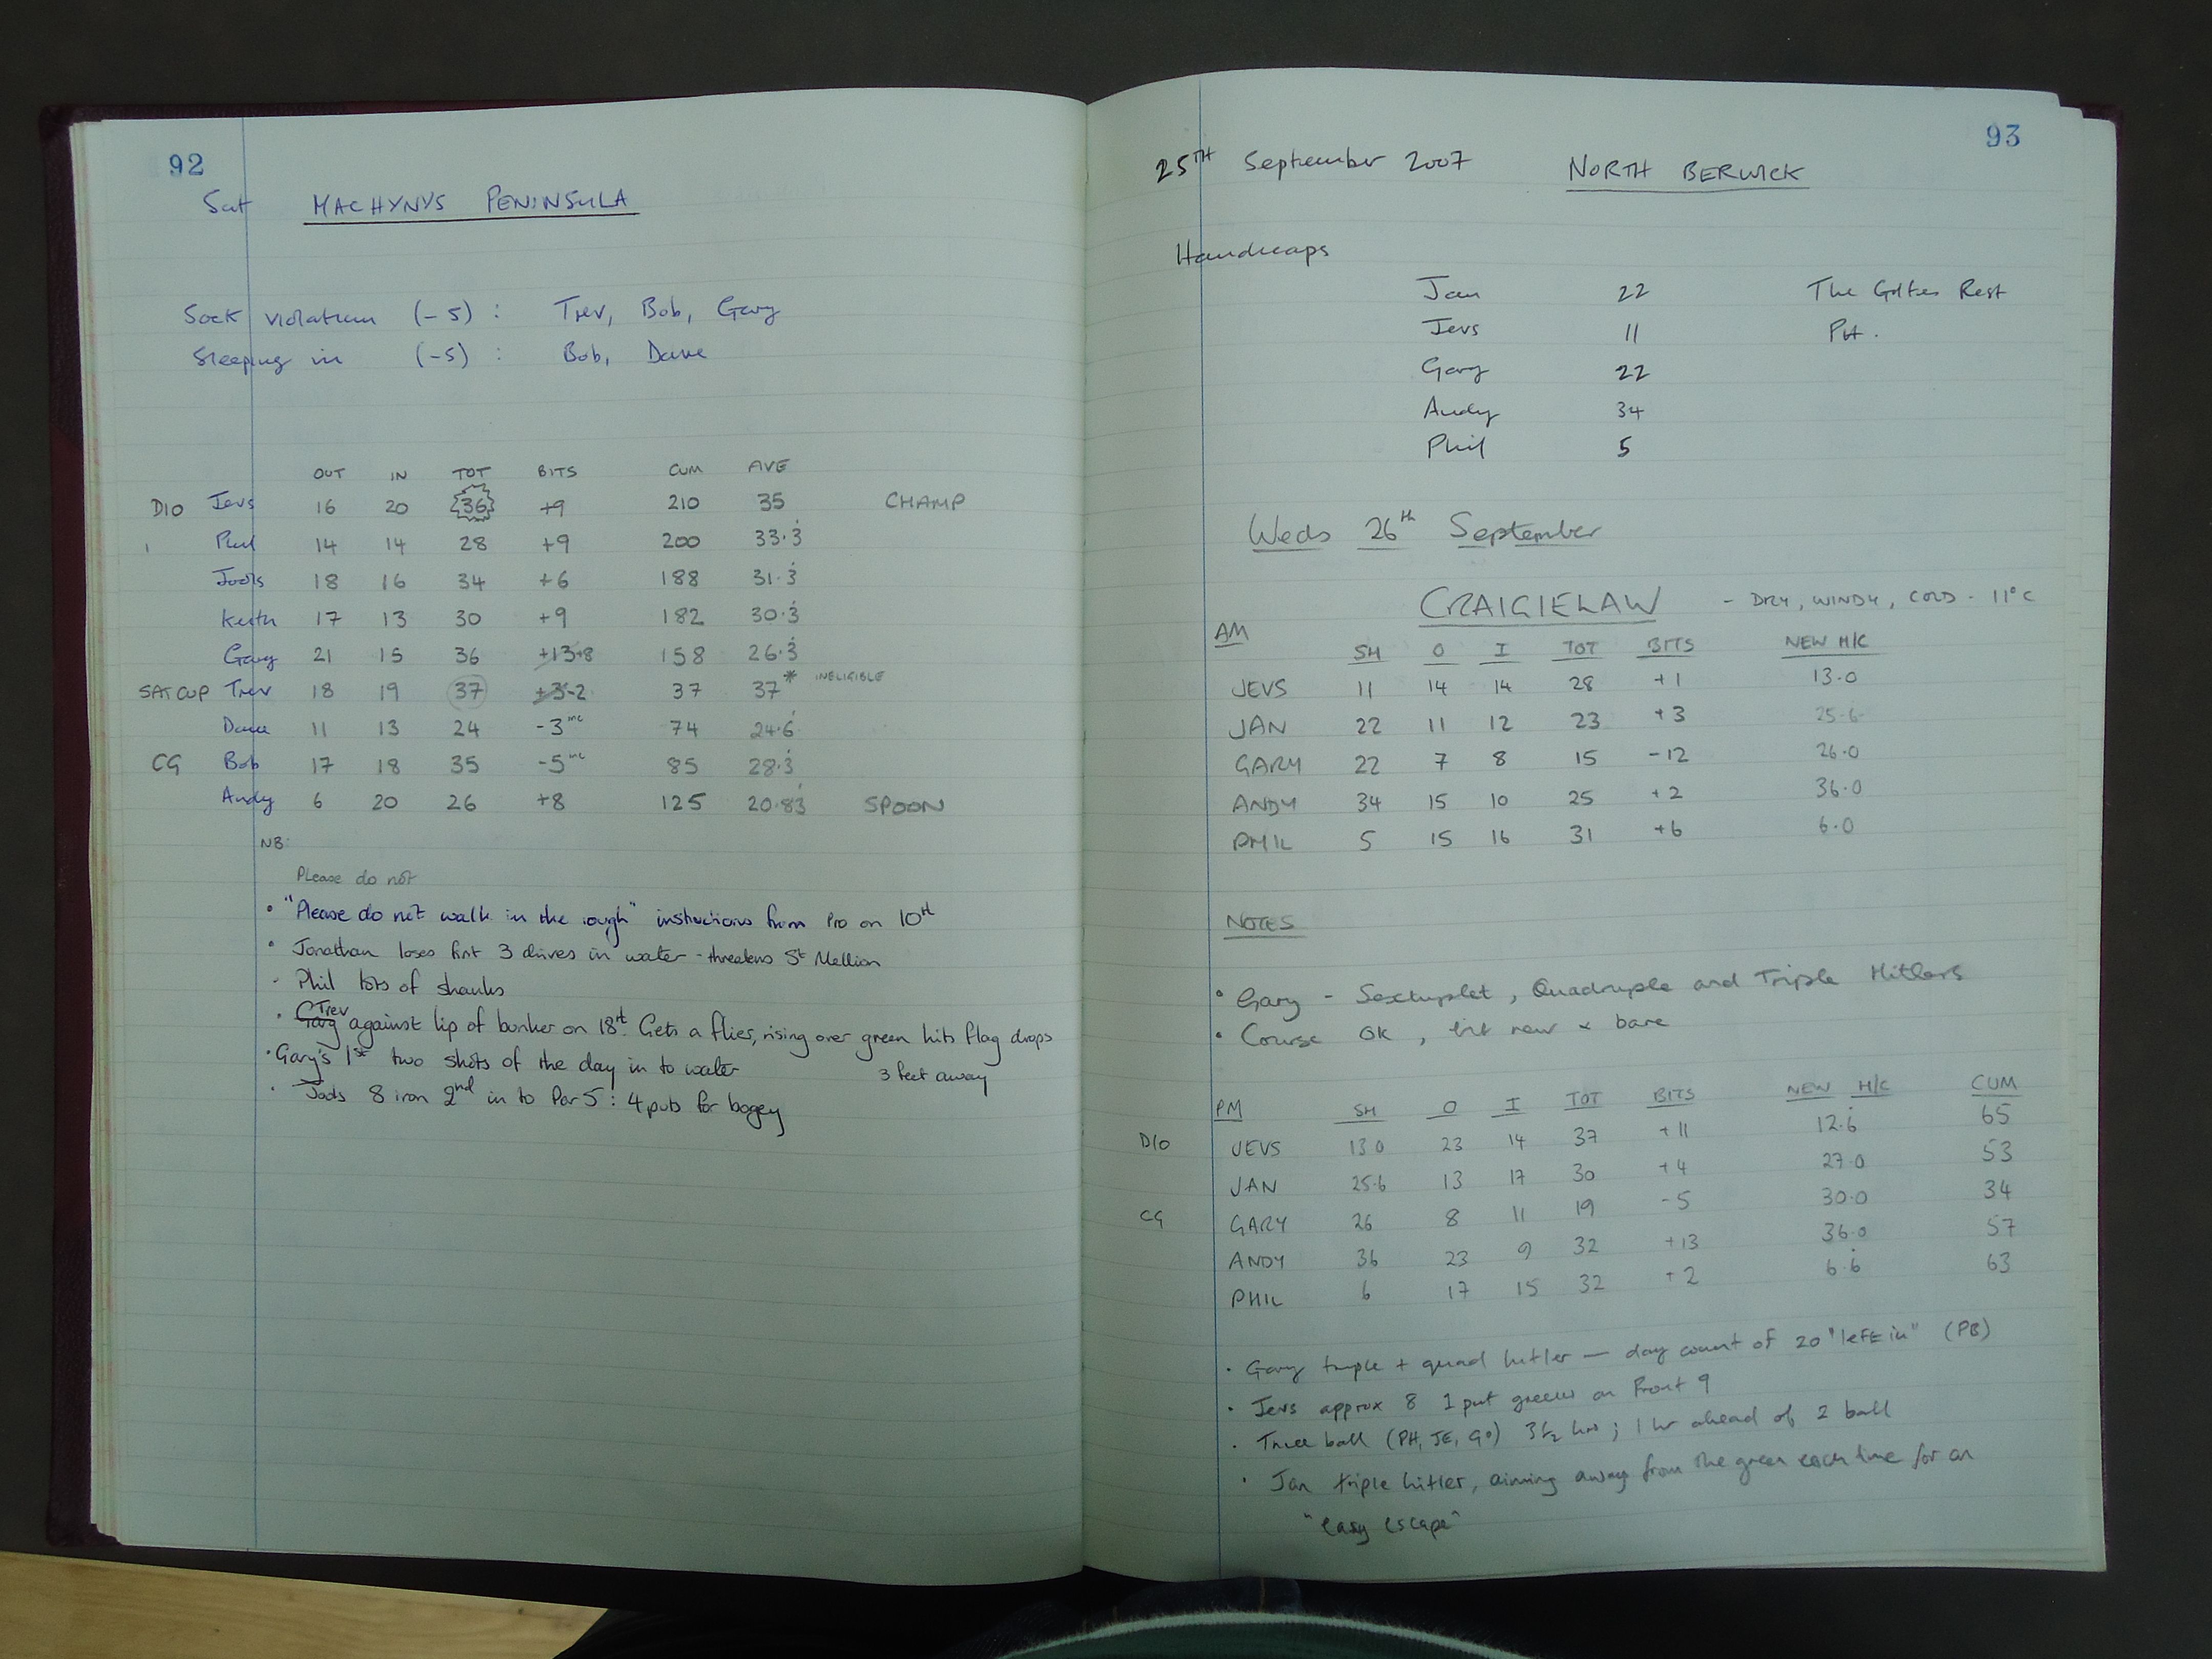 92
Sat MACHYNYS PENINSULA
Sock violation (-5) : Trev, Bob, Gary
Sleeping in (-5) : Bob, Dave
OUT IN TOT BITS CUM AVE
D10 Jevs 16 20 36 +9 210 35 CHAMP
Phil 14 14 28 +9 200 33.3
Jools 18 16 34 +6 188 31.3
Keith 17 13 30 +9 182 30.3
Gary 21 15 36 +13+8 158 26.3
SAT CUP Trev 18 19 37 +3-2 37 37* INELIGIBLE
Dave 11 13 24 -3 74 24.6
CG Bob 17 18 35 -5 85 28.3
Andy 6 20 26 +8 125 20.83 SPOON
NB:
Please do not
• "Please do not walk in the rough" instructions from Pro on 10th
• Jonathan loses first 3 drives in water - threatens St Mellion
- Phil lots of shanks
• Gary Trev against lip of bunker on 18th. Gets a flier, rising over green hits flag drops
3 feet away
• Gary's 1st two shots of the day in to water
• Jools 8 iron 2nd in to Par 5 : 4 puts for bogey
93
25TH September 2007 NORTH BERWICK
Handicaps
Jan 22 The Golfers Rest
Jevs 11
Gary 22
Andy 34
Phil 5
Weds 26th September
CRAIGIELAW - DRY, WINDY, COLD - 11°C
AM SH O I TOT BITS NEW H/C
JEVS 11 14 14 28 +1 13.0
JAN 22 11 12 23 +3 25.6
GARY 22 7 8 15 -12 26.0
ANDY 34 15 10 25 +2 36.0
PHIL 5 15 16 31 +6 6.0
NOTES
• Gary - Sextuplet, Quadruple and Triple Hitlers
• Course OK, bit new & bare
PM SH O I TOT BITS NEW H/C CUM
D10 JEVS 13.0 23 14 37 +11 12.6 65
JAN 25.6 13 17 30 +4 27.0 53
CG GARY 26 8 11 19 -5 30.0 34
ANDY 36 23 9 32 +13 36.0 57
PHIL 6 17 15 32 +2 6.6 63
• Gary triple + quad hitler — day count of 20 "left in" (PB)
• Jevs approx 8 1 put greens on Front 9
• Three ball (PH, JE, GO) 3½ hrs ; 1 hr ahead of 2 ball
• Jan triple hitler, aiming away from the green each time for an
"easy escape"